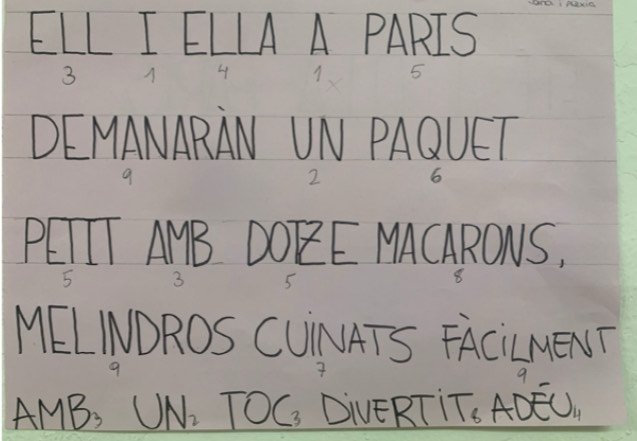 ELL I ELLA A PARIS
3 1 4 1 x 5
DEMANARÀN UN PAQUET
9 2 6
PETIT AMB DOTZE MACARONS,
5 3 5 8
MELINDROS CUINATS FÀCILMENT
9 7 9
AMB3 UN2 TOC3 DIVERTIT8 ADÉU4